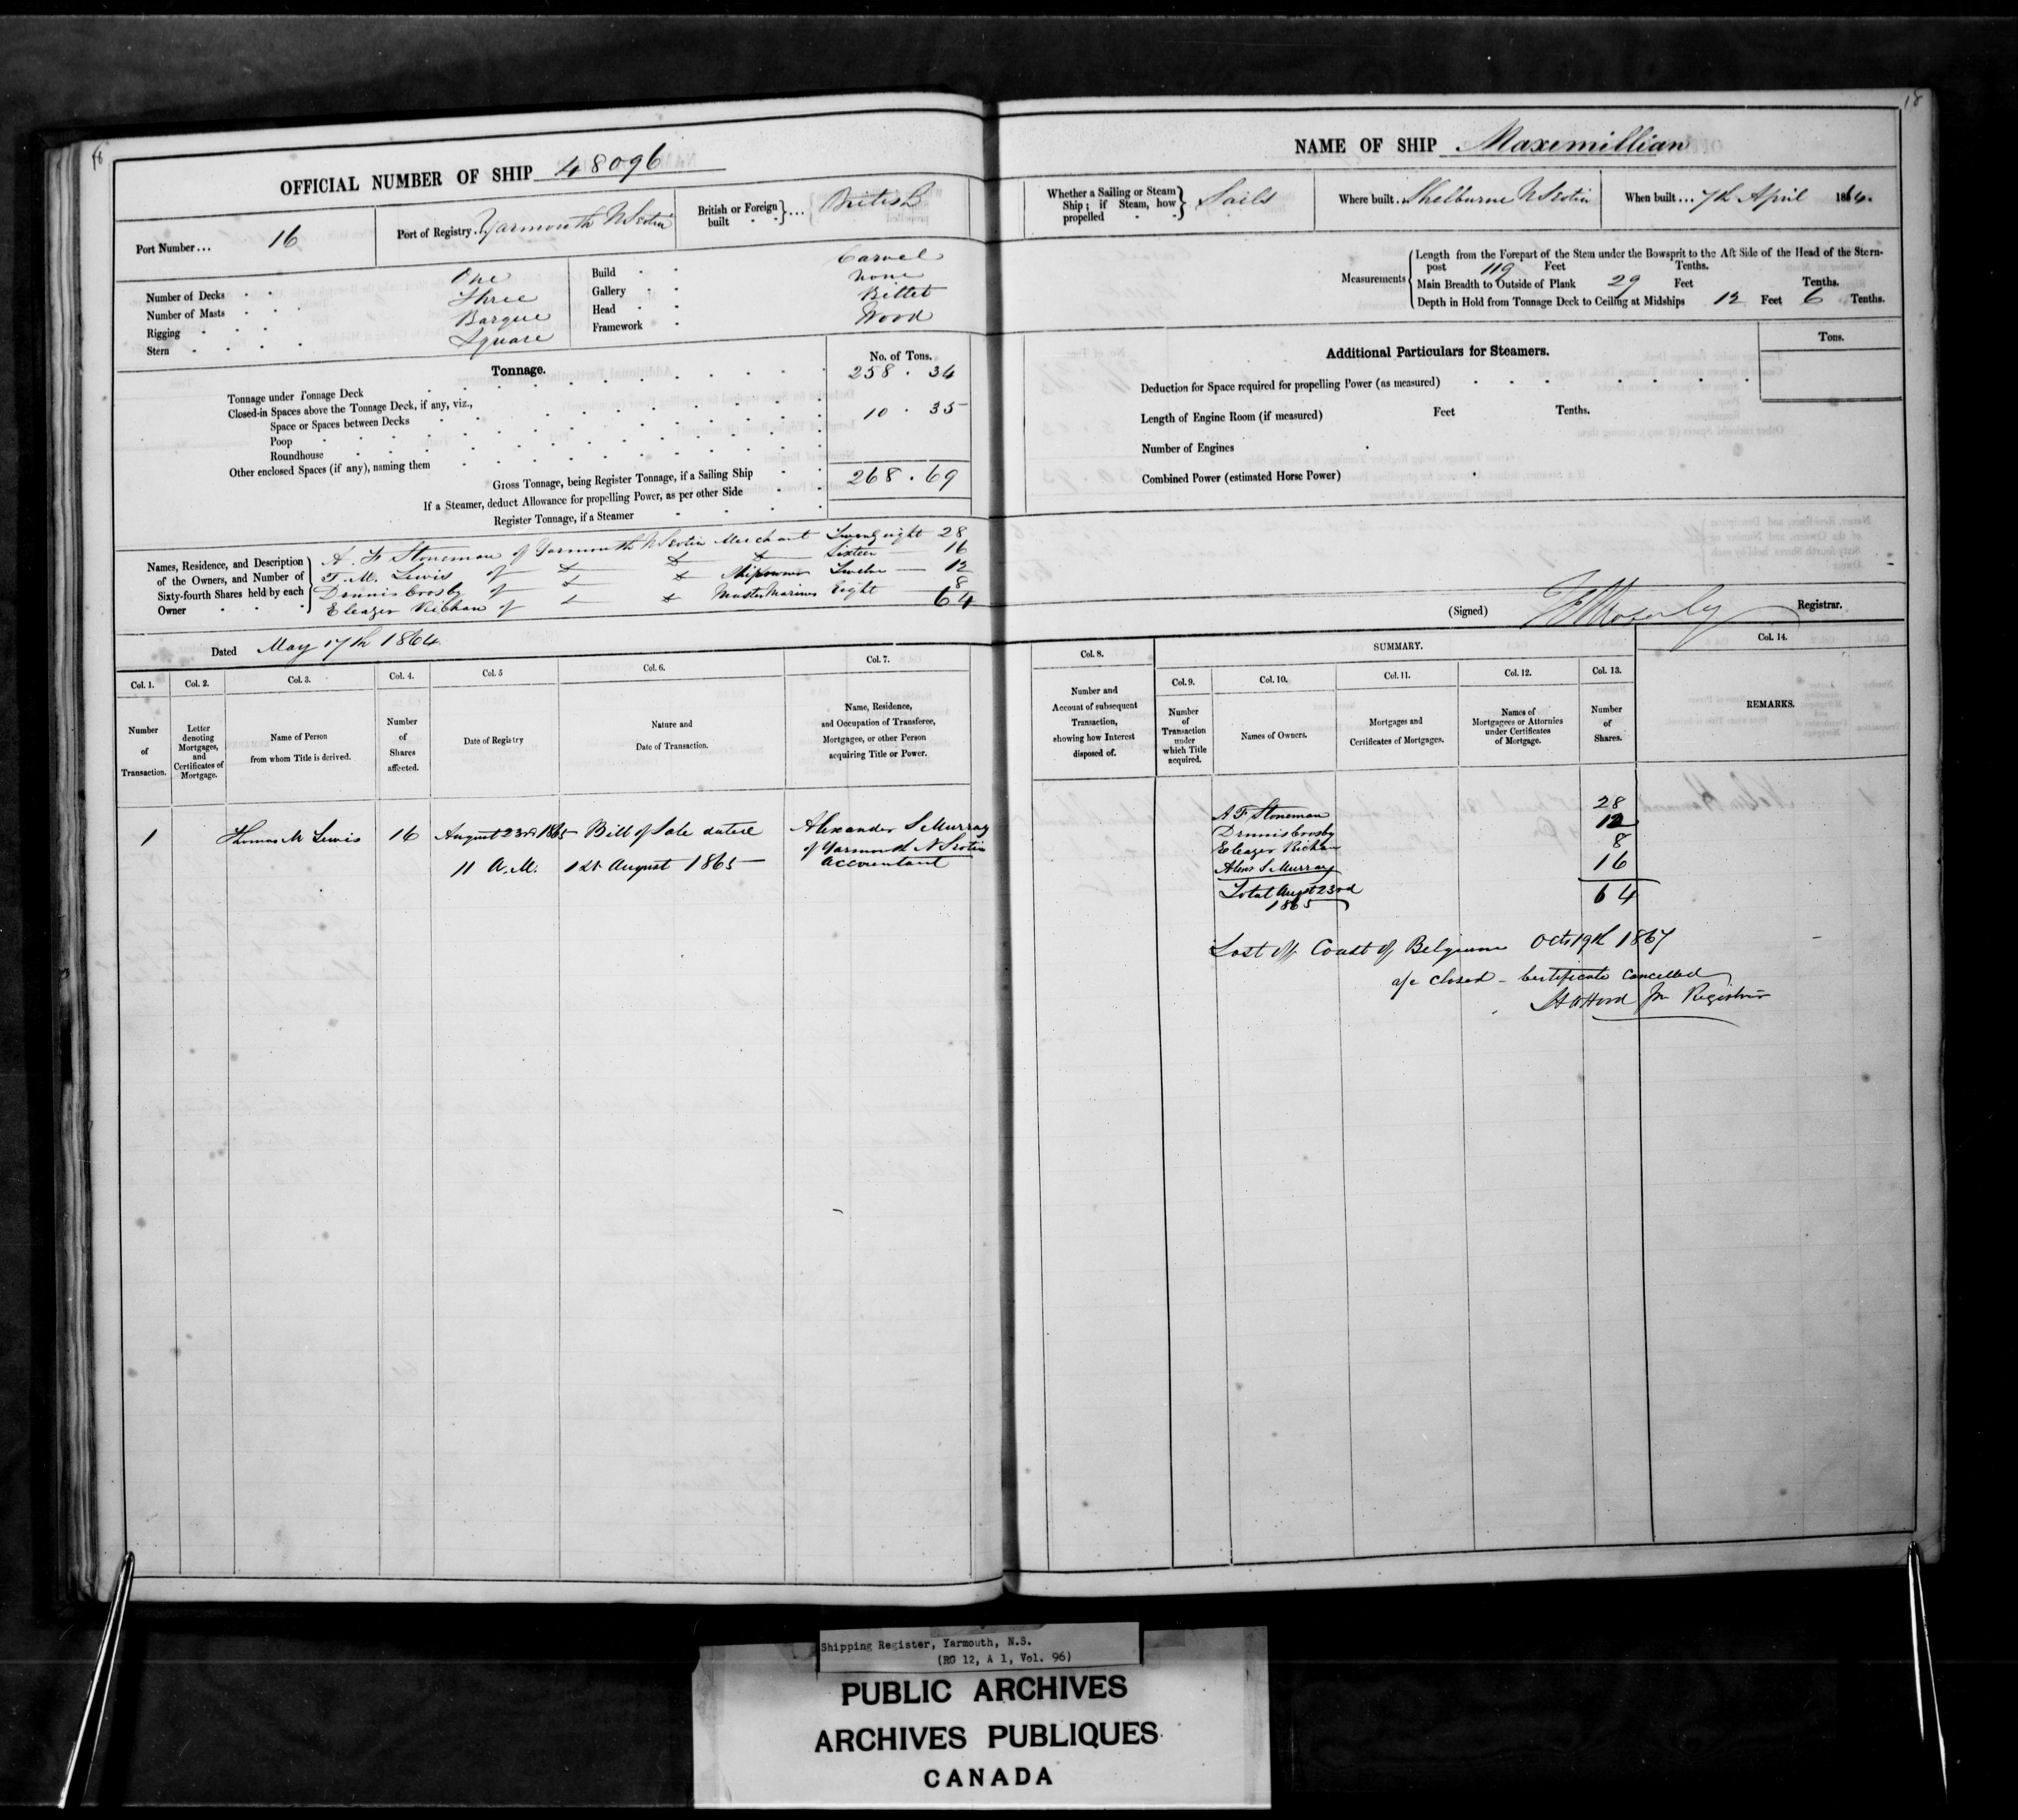 18
OFFICIAL NUMBER OF SHIP 48096
Port Number... 16
Port of Registry. Yarmouth N Scotia
British or Foreign built }... British
Number of Decks One
Number of Masts Three
Rigging Barque
Stern Square
Build Carvel
Gallery None
Head Billet
Framework Wood
Tonnage.
No. of Tons.
Tonnage under Tonnage Deck 258 . 34
Closed-in Spaces above the Tonnage Deck, if any, viz.,
Space or Spaces between Decks 10 . 35
Poop
Roundhouse
Other enclosed Spaces (if any), naming them
Gross Tonnage, being Register Tonnage, if a Sailing Ship 268 . 69
If a Steamer, deduct Allowance for propelling Power, as per other Side
Register Tonnage, if a Steamer
Names, Residence, and Description of the Owners, and Number of Sixty-fourth Shares held by each Owner
A. F. Stoneman of Yarmouth N Scotia Merchant Twenty eight 28
T. M. Lewis of Sixteen 16
Dennis Crosby of Shipowner Twelve 12
Eleazer Richan of Master Mariner Eight 8
64
Dated May 17th 1864.
Col. 1. Col. 2. Col. 3. Col. 4. Col. 5 Col. 6. Col. 7.
Number of Transaction.
Letter denoting Mortgages, and Certificates of Mortgage.
Name of Person from whom Title is derived.
Number of Shares affected.
Date of Registry
Nature and Date of Transaction.
Name, Residence, and Occupation of Transferee, Mortgagee, or other Person acquiring Title or Power.
1 Thomas M Lewis 16 August 23rd 1865 Bill of Sale dated Alexander S Murray
of Yarmouth N Scotia
11 A.M. 1st August 1865 Accountant
18
NAME OF SHIP Maximillian
Whether a Sailing or Steam Ship; if Steam, how propelled } Sails
Where built. Shelburne N Scotia
When built... 7th April 1864.
Measurements
Length from the Forepart of the Stem under the Bowsprit to the Aft Side of the Head of the Stern-
post 119 Feet Tenths.
Main Breadth to Outside of Plank 29 Feet Tenths.
Depth in Hold from Tonnage Deck to Ceiling at Midships 12 Feet 6 Tenths.
Additional Particulars for Steamers.
Tons.
Deduction for Space required for propelling Power (as measured)
Length of Engine Room (if measured) Feet Tenths.
Number of Engines
Combined Power (estimated Horse Power)
(Signed) Registrar.
SUMMARY.
Col. 8. Col. 9. Col. 10. Col. 11. Col. 12. Col. 13. Col. 14.
Number and Account of subsequent Transaction, showing how Interest disposed of.
Number of Transaction under which Title acquired.
Names of Owners.
Mortgages and Certificates of Mortgages.
Names of Mortgagees or Attornies under Certificates of Mortgage.
Number of Shares.
REMARKS.
A F Stoneman 28
Dennis Crosby 12
Eleazer Richan 8
Alexr S Murray 16
Total Augst 23rd 1865 64
Lost off Coast of Belgium Octr 19th 1867
a/c closed - Certificate Cancelled
Registrar
Shipping Register, Yarmouth, N.S.
(RG 12, A 1, Vol. 96)
PUBLIC ARCHIVES
ARCHIVES PUBLIQUES
CANADA